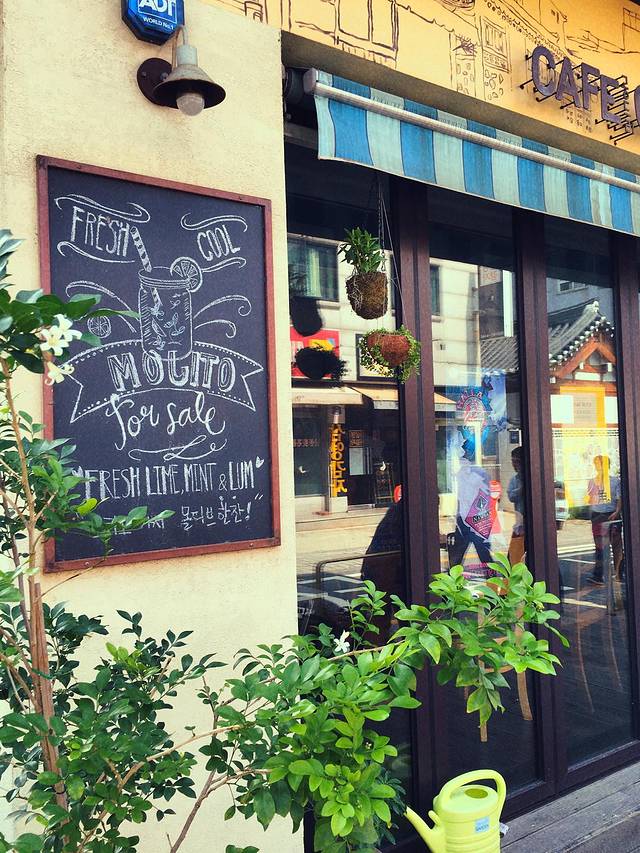 ADT
WORLD No.1
CAFE
FRESH
COOL
MOGITO
for sale
FRESH LIME, MINT & LUM
몰디브 한잔!"